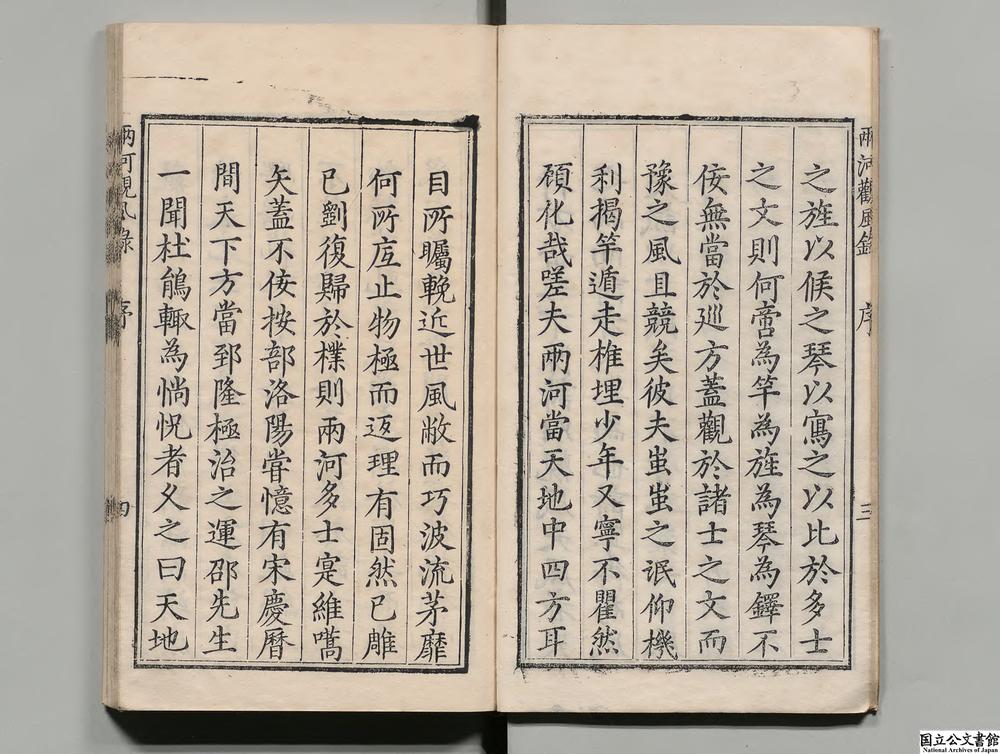 兩河觀風錄 序 三
之旌以候之琴以寫之以比於多士
之文則何啻為竿為旌為琴為鐸不
佞無當於廵方蓋觀於諸士之文而
豫之風且競矣彼夫蚩蚩之氓仰機
利揭竿遁走椎埋少年又寧不瞿然
頋化哉嗟夫兩河當天地中四方耳
目所矚輓近世風敝而巧波流茅靡
何所底止物極而返理有固然已雕
已劉復歸於樸則兩河多士寔維嚆
矢蓋不佞按部洛陽甞憶有宋慶曆
間天下方當郅隆極治之運邵先生
一聞杜鵑輙為惝怳者久之曰天地
兩河觀風錄 序 四
国立公文書館
National Archives of Japan